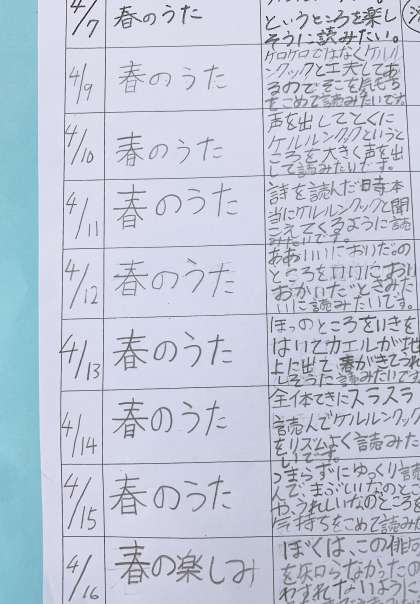 4/7 春のうた
というところを楽し
そうに読みたい。
4/9 春のうた
ケロケロではなくケルル
ンクックと工夫してあ
るのでそこを気もち
をこめて読みたいです
4/10 春のうた
声を出してとくに
ケルルンクックというと
ころを大きく声を出
して読みたいです。
4/11 春のうた
詩を読んだ時本
当にケルルンクックと聞
こえてくるように読
みたいです。
4/12 春のうた
ああいいにおいだ。の
ところを口ににおい
おかいだときみた
いに読みたいです。
4/13 春のうた
ほっのところをいきを
はいてカエルが地
上に出て春がきてうれ
しそうに読みたいです
4/14 春のうた
全体てきにスラスラ
読んでケルルンクック
をリズムよく読みた
いです。
4/15 春のうた
つまらずにゆっくり読
んで、まぶしいなのとこ
や、うれしいなのところを
気持ちをこめて読みた
4/16 春の楽しみ
ぼくは、この俳句
を知らなかったの
わすれないように